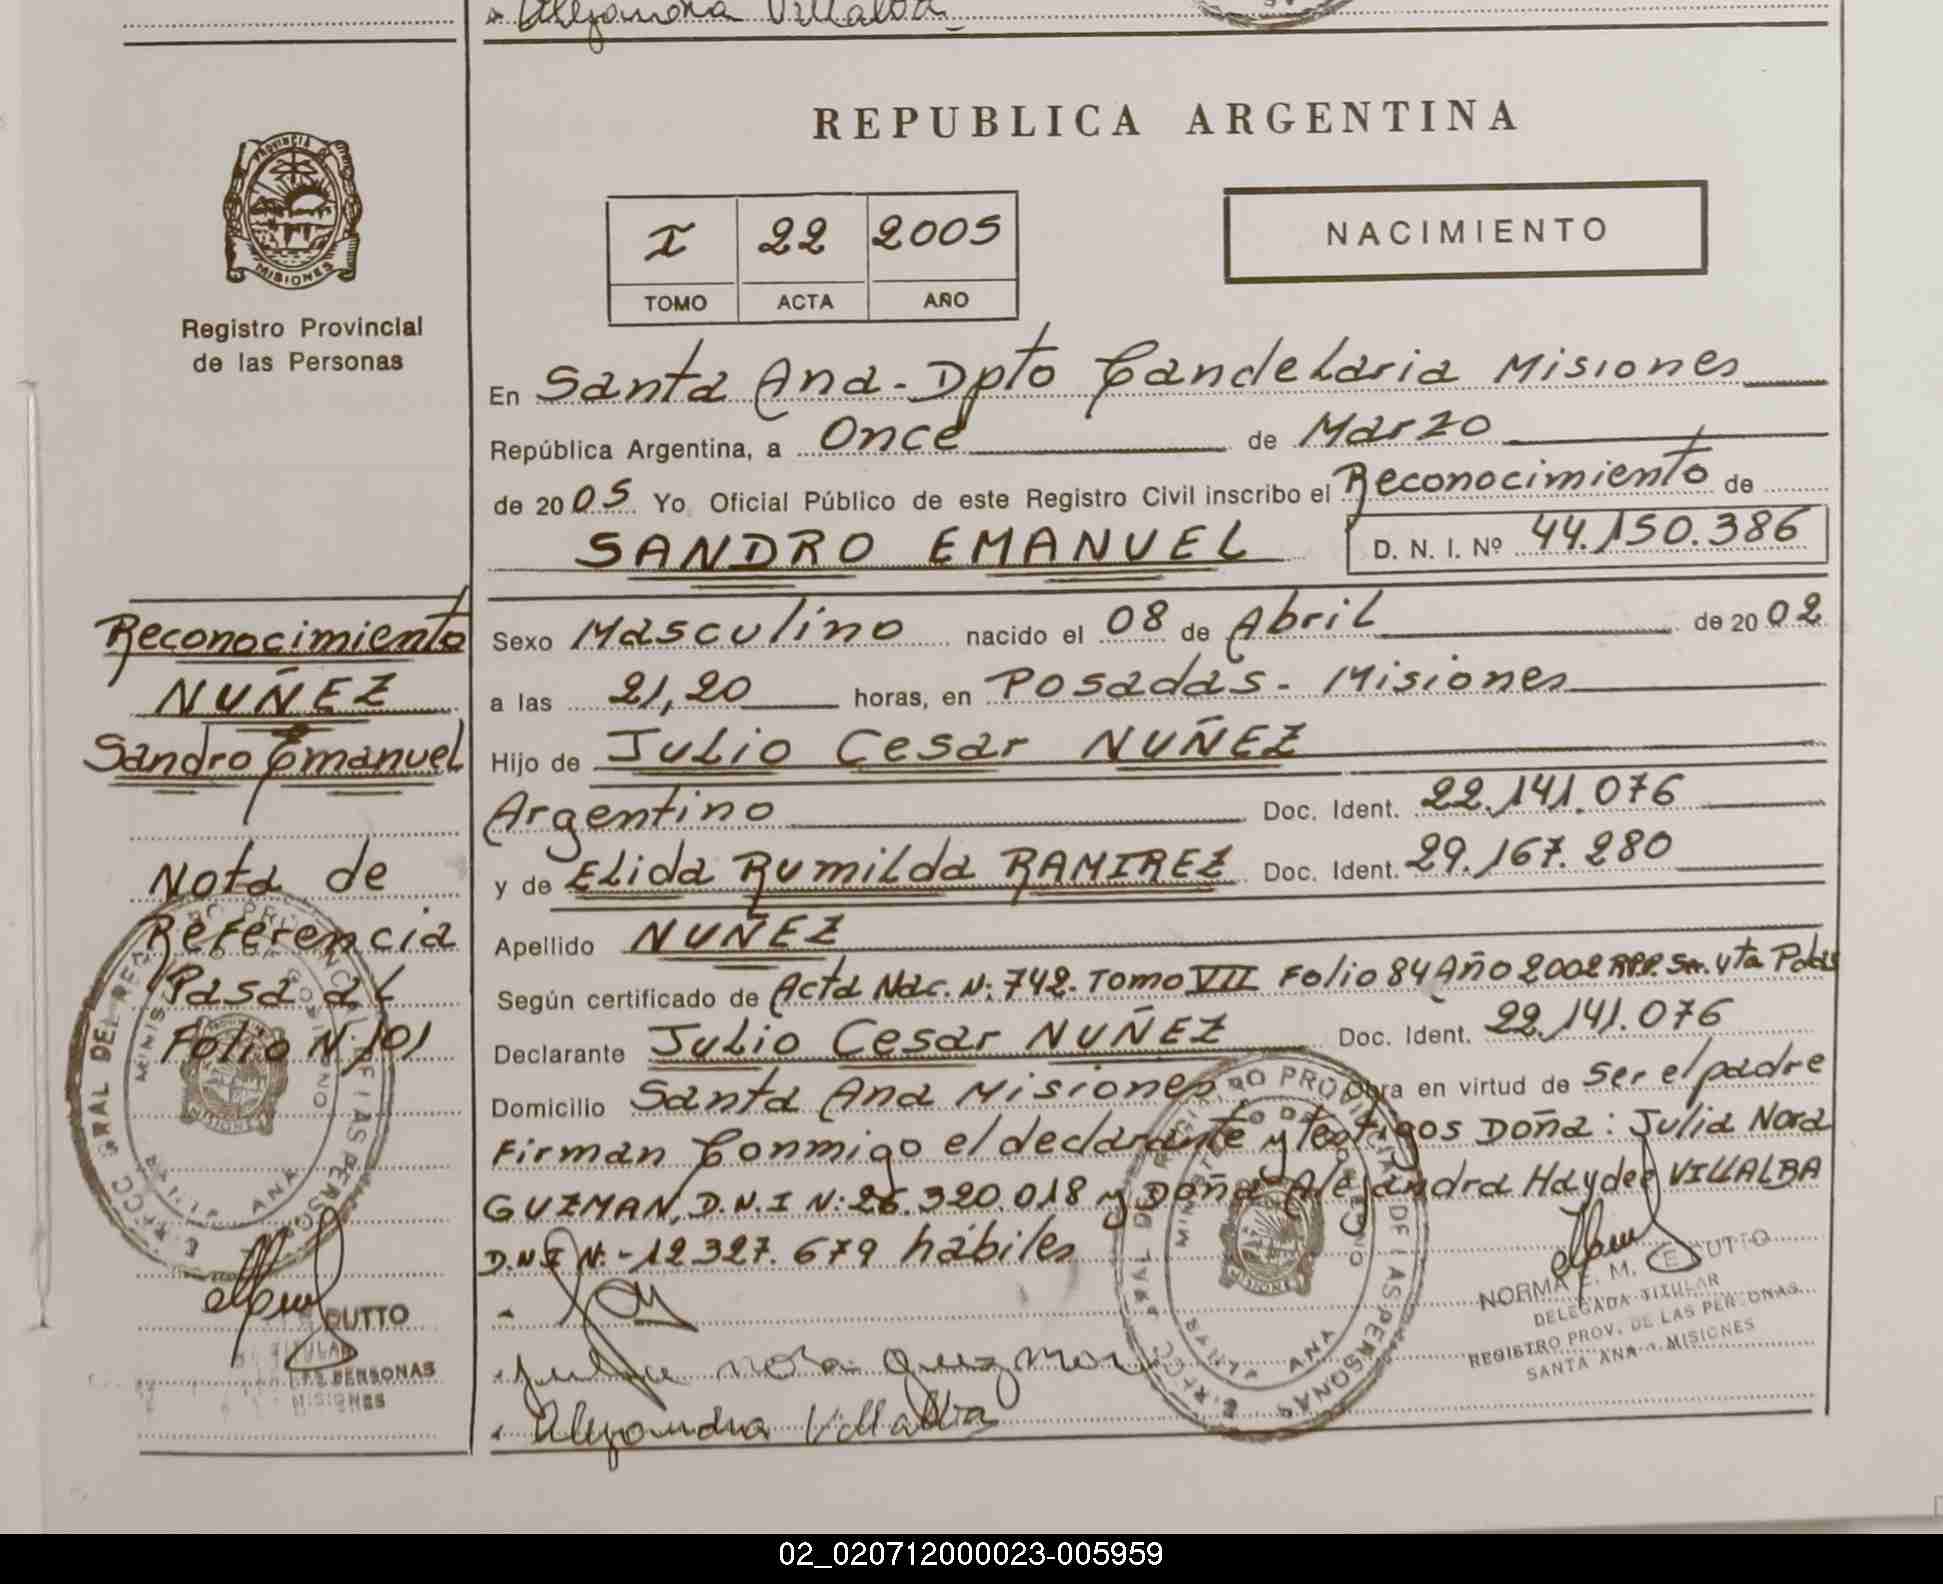 Alejandra Villalba
PROVINCIA DE
MISIONES
Registro Provincial
de las Personas
REPUBLICA ARGENTINA
I 22 2005
TOMO ACTA AÑO
NACIMIENTO
En Santa Ana - Dpto Candelaria Misiones
República Argentina, a Once de Marzo
de 2005 Yo Oficial Público de este Registro Civil inscribo el Reconocimiento de
SANDRO EMANUEL D. N. I. Nº 44.150.386
Sexo Masculino nacido el 08 de Abril de 2002
a las 21,20 horas, en Posadas - Misiones
Hijo de Julio Cesar NUÑEZ
Argentino Doc. Ident. 22.141.076
y de Elida Rumilda RAMIREZ Doc. Ident. 29.167.280
Apellido NUÑEZ
Según certificado de Acta Nac. N: 742. Tomo VII Folio 84 Año 2002 R.P.P. Sm. yta Pdas
Declarante Julio Cesar NUÑEZ Doc. Ident. 22.141.076
Domicilio Santa Ana Misiones Obra en virtud de Ser el padre
Firman Conmigo el declarante y testigos Doña: Julia Nora
GUZMAN, D.N.I N: 26.320.018 y Doña Alejandra Haydee VILLALBA
D.N.I N: - 12.327.679 hábiles
Alejandra Villalba
NORMA E. M. DUTTO
DELEGADA TITULAR
REGISTRO PROV. DE LAS PERSONAS
SANTA ANA - MISIONES
Reconocimiento
NUÑEZ
Sandro Emanuel
Nota de
Referencia
Pasa al
Folio N: 101
DUTTO
TITULAR
LAS PERSONAS
MISIONES
02_020712000023-005959